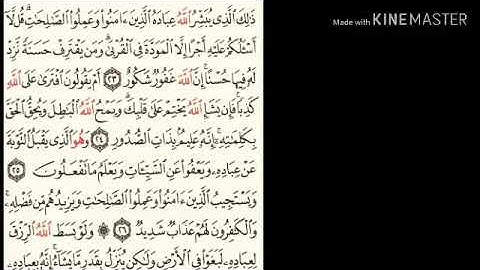 Made with KINEMASTER
ذَٰلِكَ ٱلَّذِى يُبَشِّرُ ٱللَّهُ عِبَادَهُ ٱلَّذِينَ ءَامَنُوا۟ وَعَمِلُوا۟ ٱلصَّـٰلِحَـٰتِ ۗ قُل لَّآ
أَسْـَٔلُكُمْ عَلَيْهِ أَجْرًا إِلَّا ٱلْمَوَدَّةَ فِى ٱلْقُرْبَىٰ ۗ وَمَن يَقْتَرِفْ حَسَنَةً نَّزِدْ
لَهُۥ فِيهَا حُسْنًا ۚ إِنَّ ٱللَّهَ غَفُورٌ شَكُورٌ ٢٣ أَمْ يَقُولُونَ ٱفْتَرَىٰ عَلَى ٱللَّهِ
كَذِبًا ۖ فَإِن يَشَإِ ٱللَّهُ يَخْتِمْ عَلَىٰ قَلْبِكَ ۗ وَيَمْحُ ٱللَّهُ ٱلْبَـٰطِلَ وَيُحِقُّ ٱلْحَقَّ
بِكَلِمَـٰتِهِۦٓ ۚ إِنَّهُۥ عَلِيمٌۢ بِذَاتِ ٱلصُّدُورِ ٢٤ وَهُوَ ٱلَّذِى يَقْبَلُ ٱلتَّوْبَةَ
عَنْ عِبَادِهِۦ وَيَعْفُوا۟ عَنِ ٱلسَّيِّـَٔاتِ وَيَعْلَمُ مَا تَفْعَلُونَ ٢٥
وَيَسْتَجِيبُ ٱلَّذِينَ ءَامَنُوا۟ وَعَمِلُوا۟ ٱلصَّـٰلِحَـٰتِ وَيَزِيدُهُم مِّن فَضْلِهِۦ ۚ
وَٱلْكَـٰفِرُونَ لَهُمْ عَذَابٌ شَدِيدٌ ٢٦ ۞ وَلَوْ بَسَطَ ٱللَّهُ ٱلرِّزْقَ
لِعِبَادِهِۦ لَبَغَوْا۟ فِى ٱلْأَرْضِ وَلَـٰكِن يُنَزِّلُ بِقَدَرٍ مَّا يَشَآءُ ۚ إِنَّهُۥ بِعِبَادِهِۦ